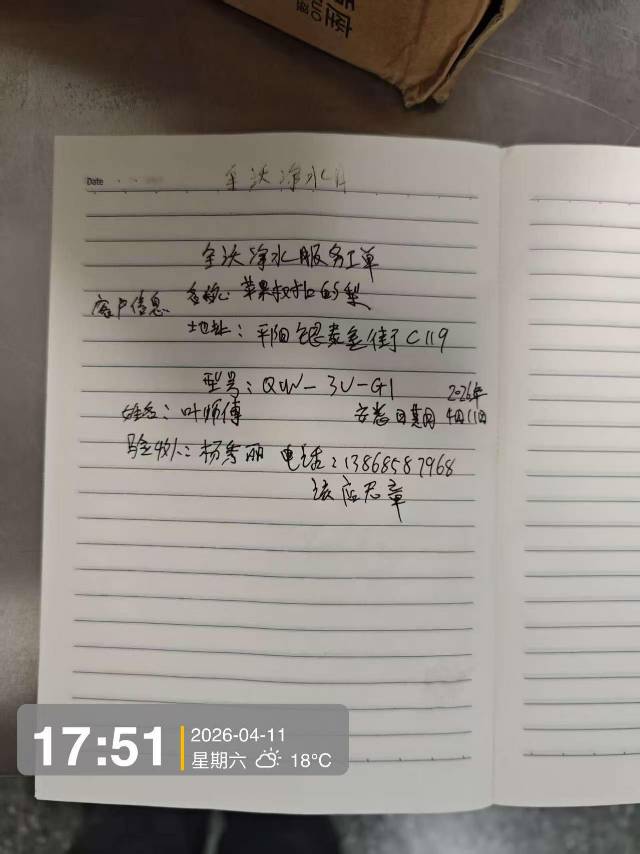 座
Date
全沃净水
全沃净水服务工单
客户信息 名称: 苹果
地址: 平阳 街 C119
型号: QW-3U-G1 2026年
姓名: 叶师傅 安装日期 4月11日
验收人: 杨秀丽 电话: 13868587968
该店无章
17:51
2026-04-11
星期六 18°C